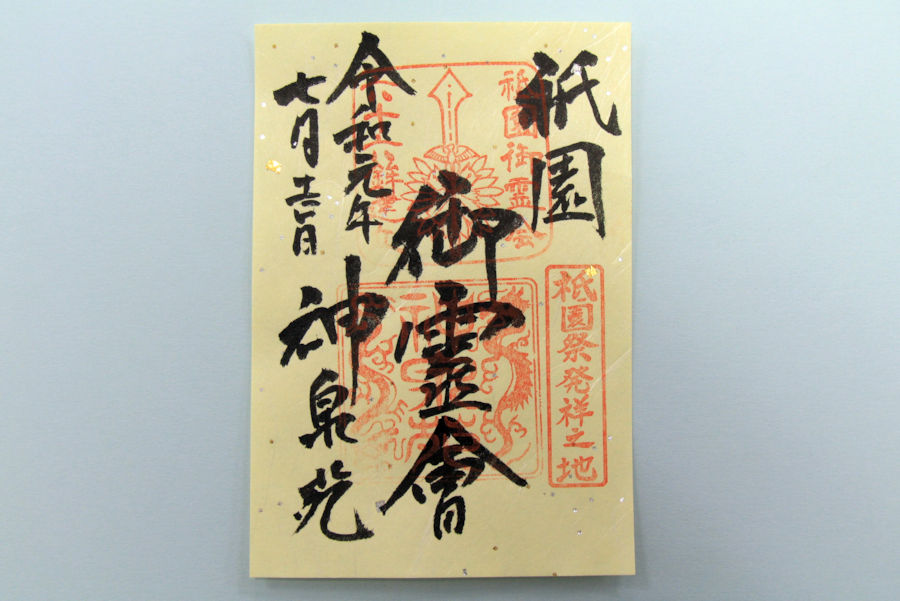 祇園
祇園御霊会
祇園祭発祥之地
御靈會
令和元年
七月
神泉苑